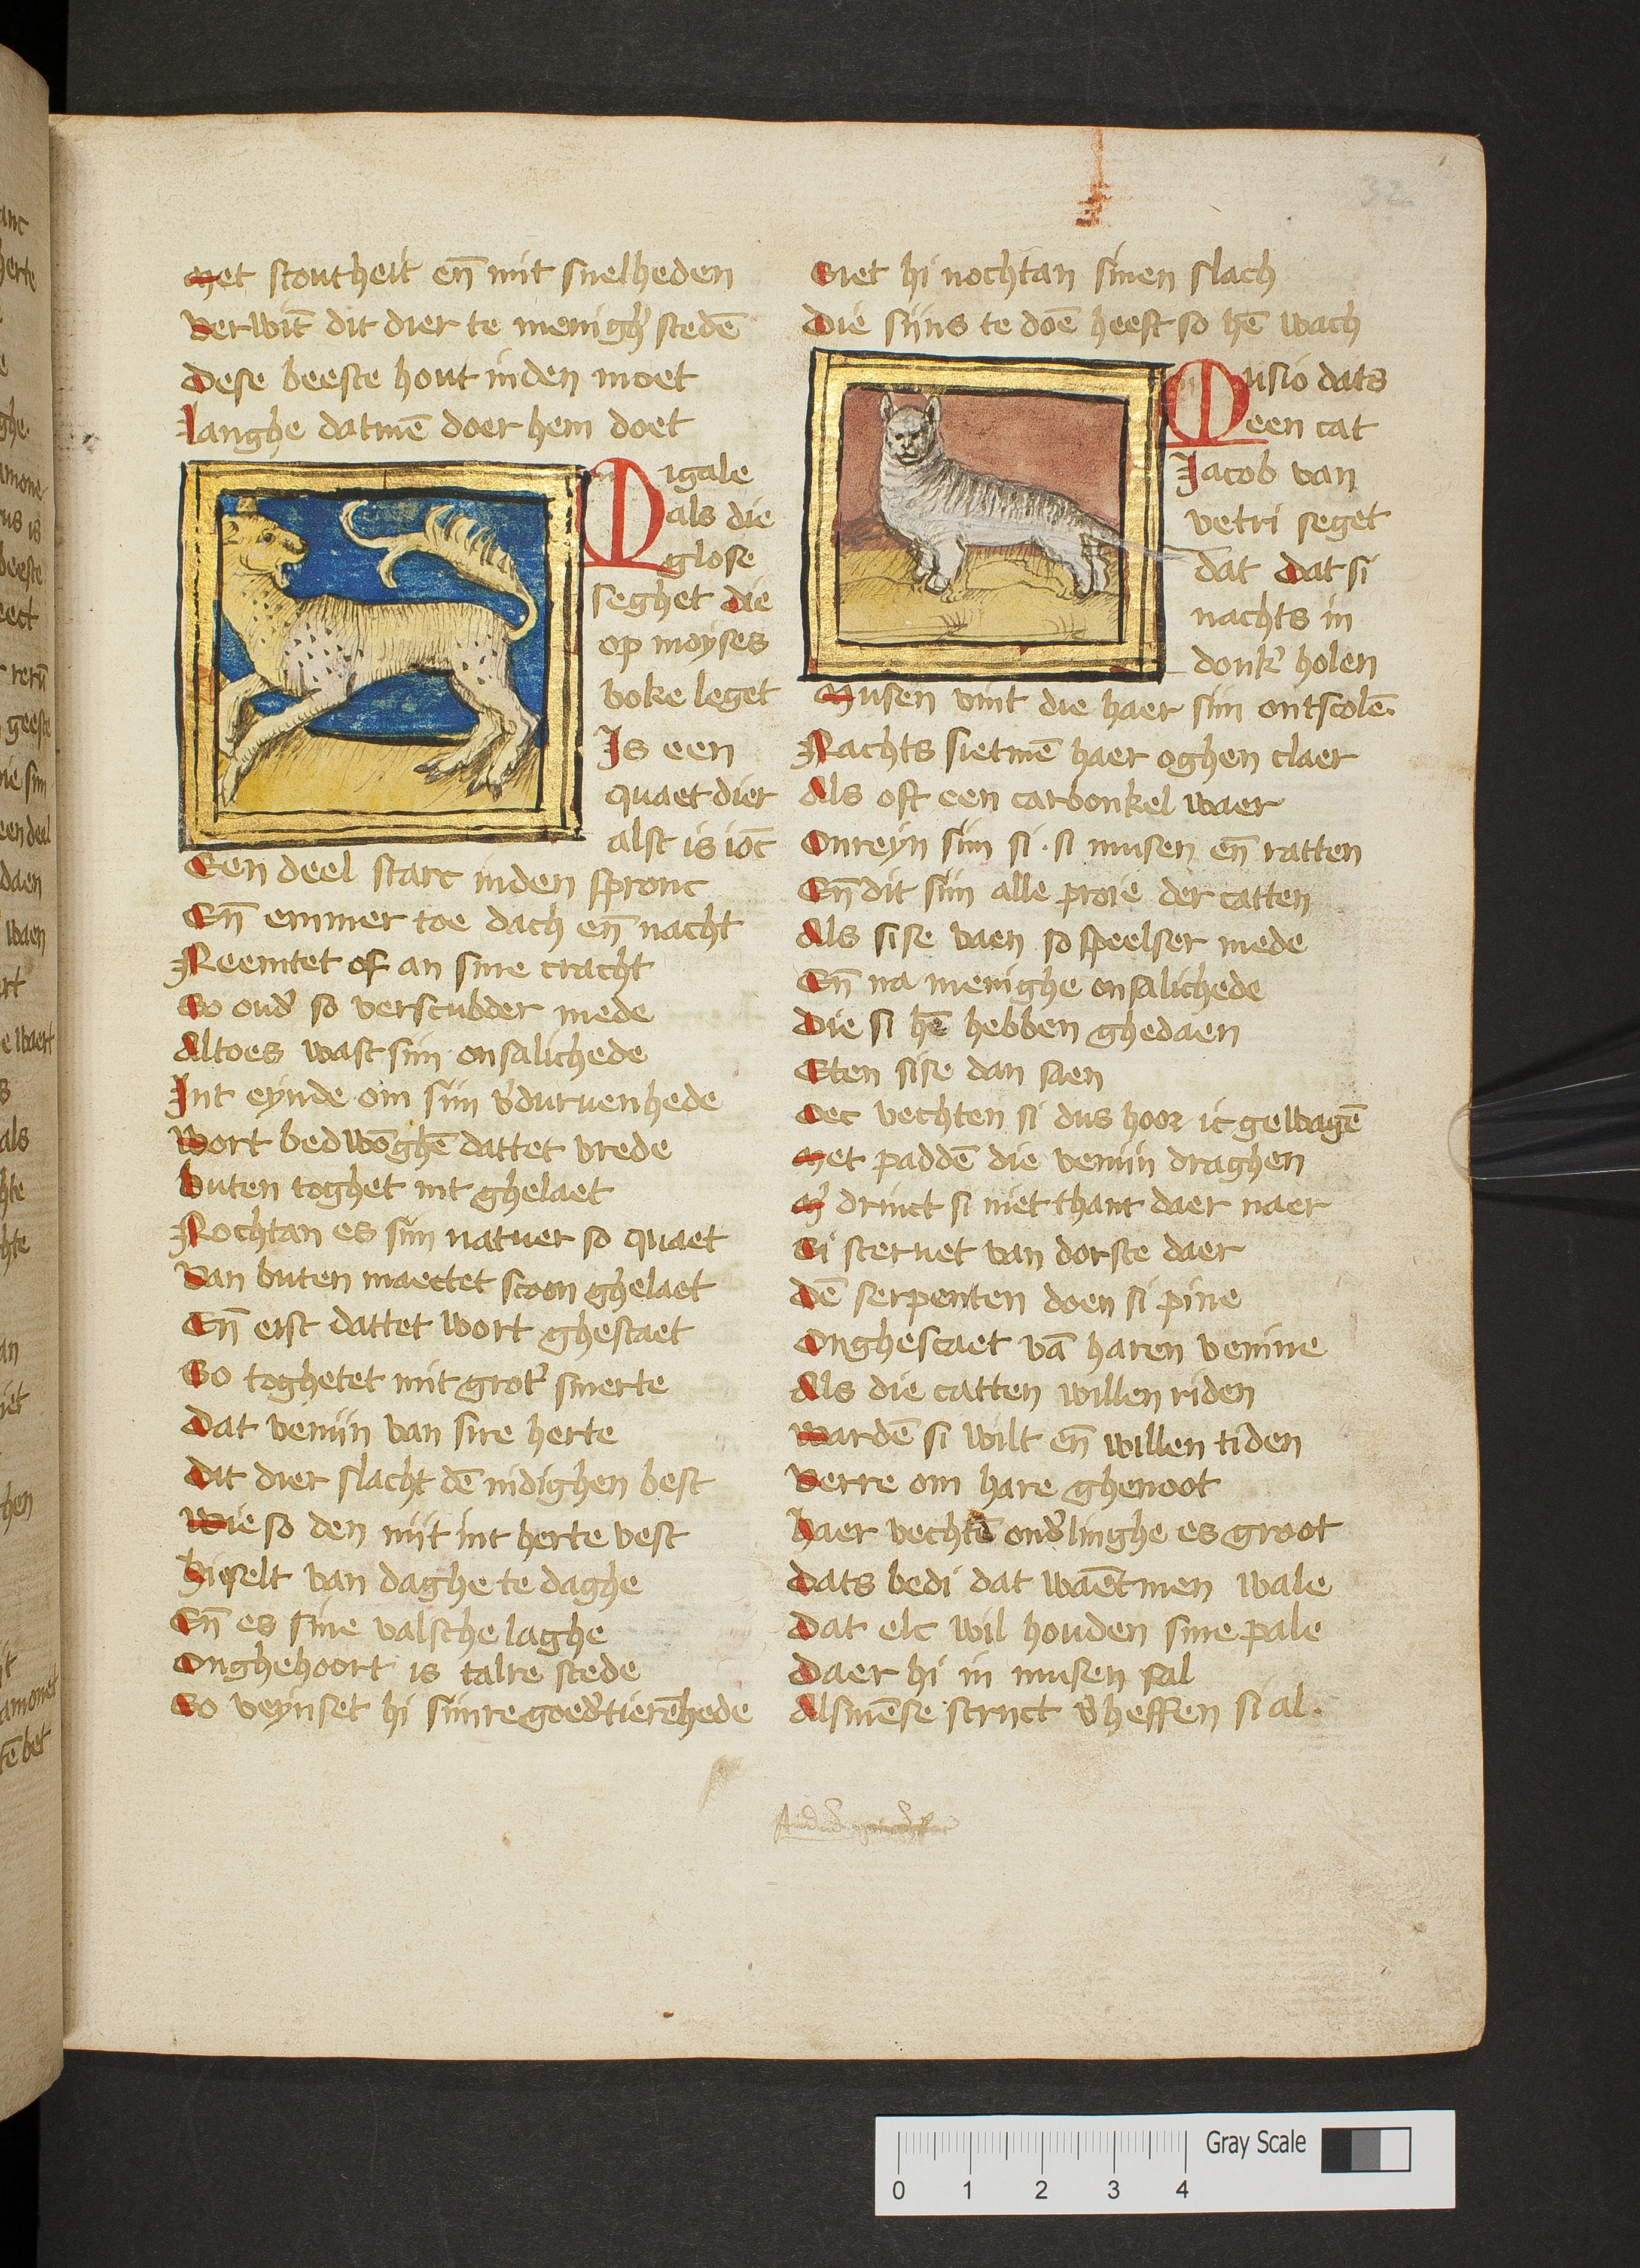 Met stoutheit en̄ mit snelheden
Verwīt dit dier te menigh̓ stedē
Dese beeste hout inden moet
Langhe datmē doer hem doet
Migale
als die
glose
seghet die
op moyses
boke leget
Is een
quaet dier
alst is ioc̄
Een deel starc inden spronc
En̄ emmer toe dach en̄ nacht
Neemtet of an sine cracht
So oud̓ so verscubder mede
Altoes wast sijn onsalichede
Int eynde om sijn v̓durvenhede
Wort bedwōghē dattet vrede
Buten toghet int ghelaet
Nochtan es sijn natuer so quaet
Van buten maectet scoon ghelaet
En̄ eist dattet wort ghestaet
So toghetet mit grot̓ smerte
Dat venijn van sire herte
Dit dier slacht dē nidighen best
Wie so den nijt int herte vest
Hi quelt van daghe te daghe
En̄ es sine valsche laghe
Onghehoort is talre stede
So veynset hi sijnre goed̓tierēhede
Siet hi nochtan sinen slach
Die sijns te doē heeft so hē wach
Musio dats
een cat
Jacob van
vetri seget
dat Dat si
nachts in
donk̓ holen
Musen vint die haer sijn ontscolē
Nachts sietmē haer oghen claer
Als oft een carbonkel waer
Onreyn sijn si · si musen en̄ ratten
En̄ dit sijn alle proie der catten
Als sise vaen so speelser mede
En̄ na menighe onsalichede
Die si hē hebben ghedaen
Eten sise dan saen
Oec vechten si dus hoor ic gewagē
Met paddē die venijn draghen
M̓ drinct si niet thant daer naer
Si stervet van dorste daer
Dē serpenten doen si pine
Onghescaet vā haren venine
Als die catten willen riden
Wardē si wilt en̄ willen tiden
Verre om hare ghenoot
Haer vechtē ond̓linghe es groot
Dats bedi dat waēt men wale
Dat elc wil houden sine pale
Daer hi in musen sal
Alsmēse strijct v̓heffen si al ·
Gray Scale
0 1 2 3 4